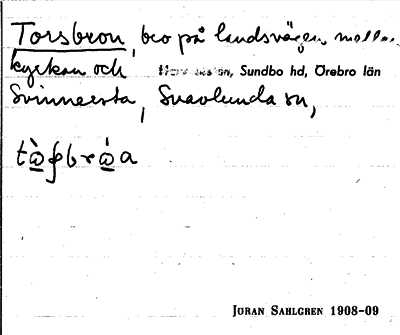 Torsbron, bro på landsvägen mellan
kyrkan och Sundbo hd, Örebro län
Svinnersta, Svavlunda sn,
JÖRAN SAHLGREN 1908-09